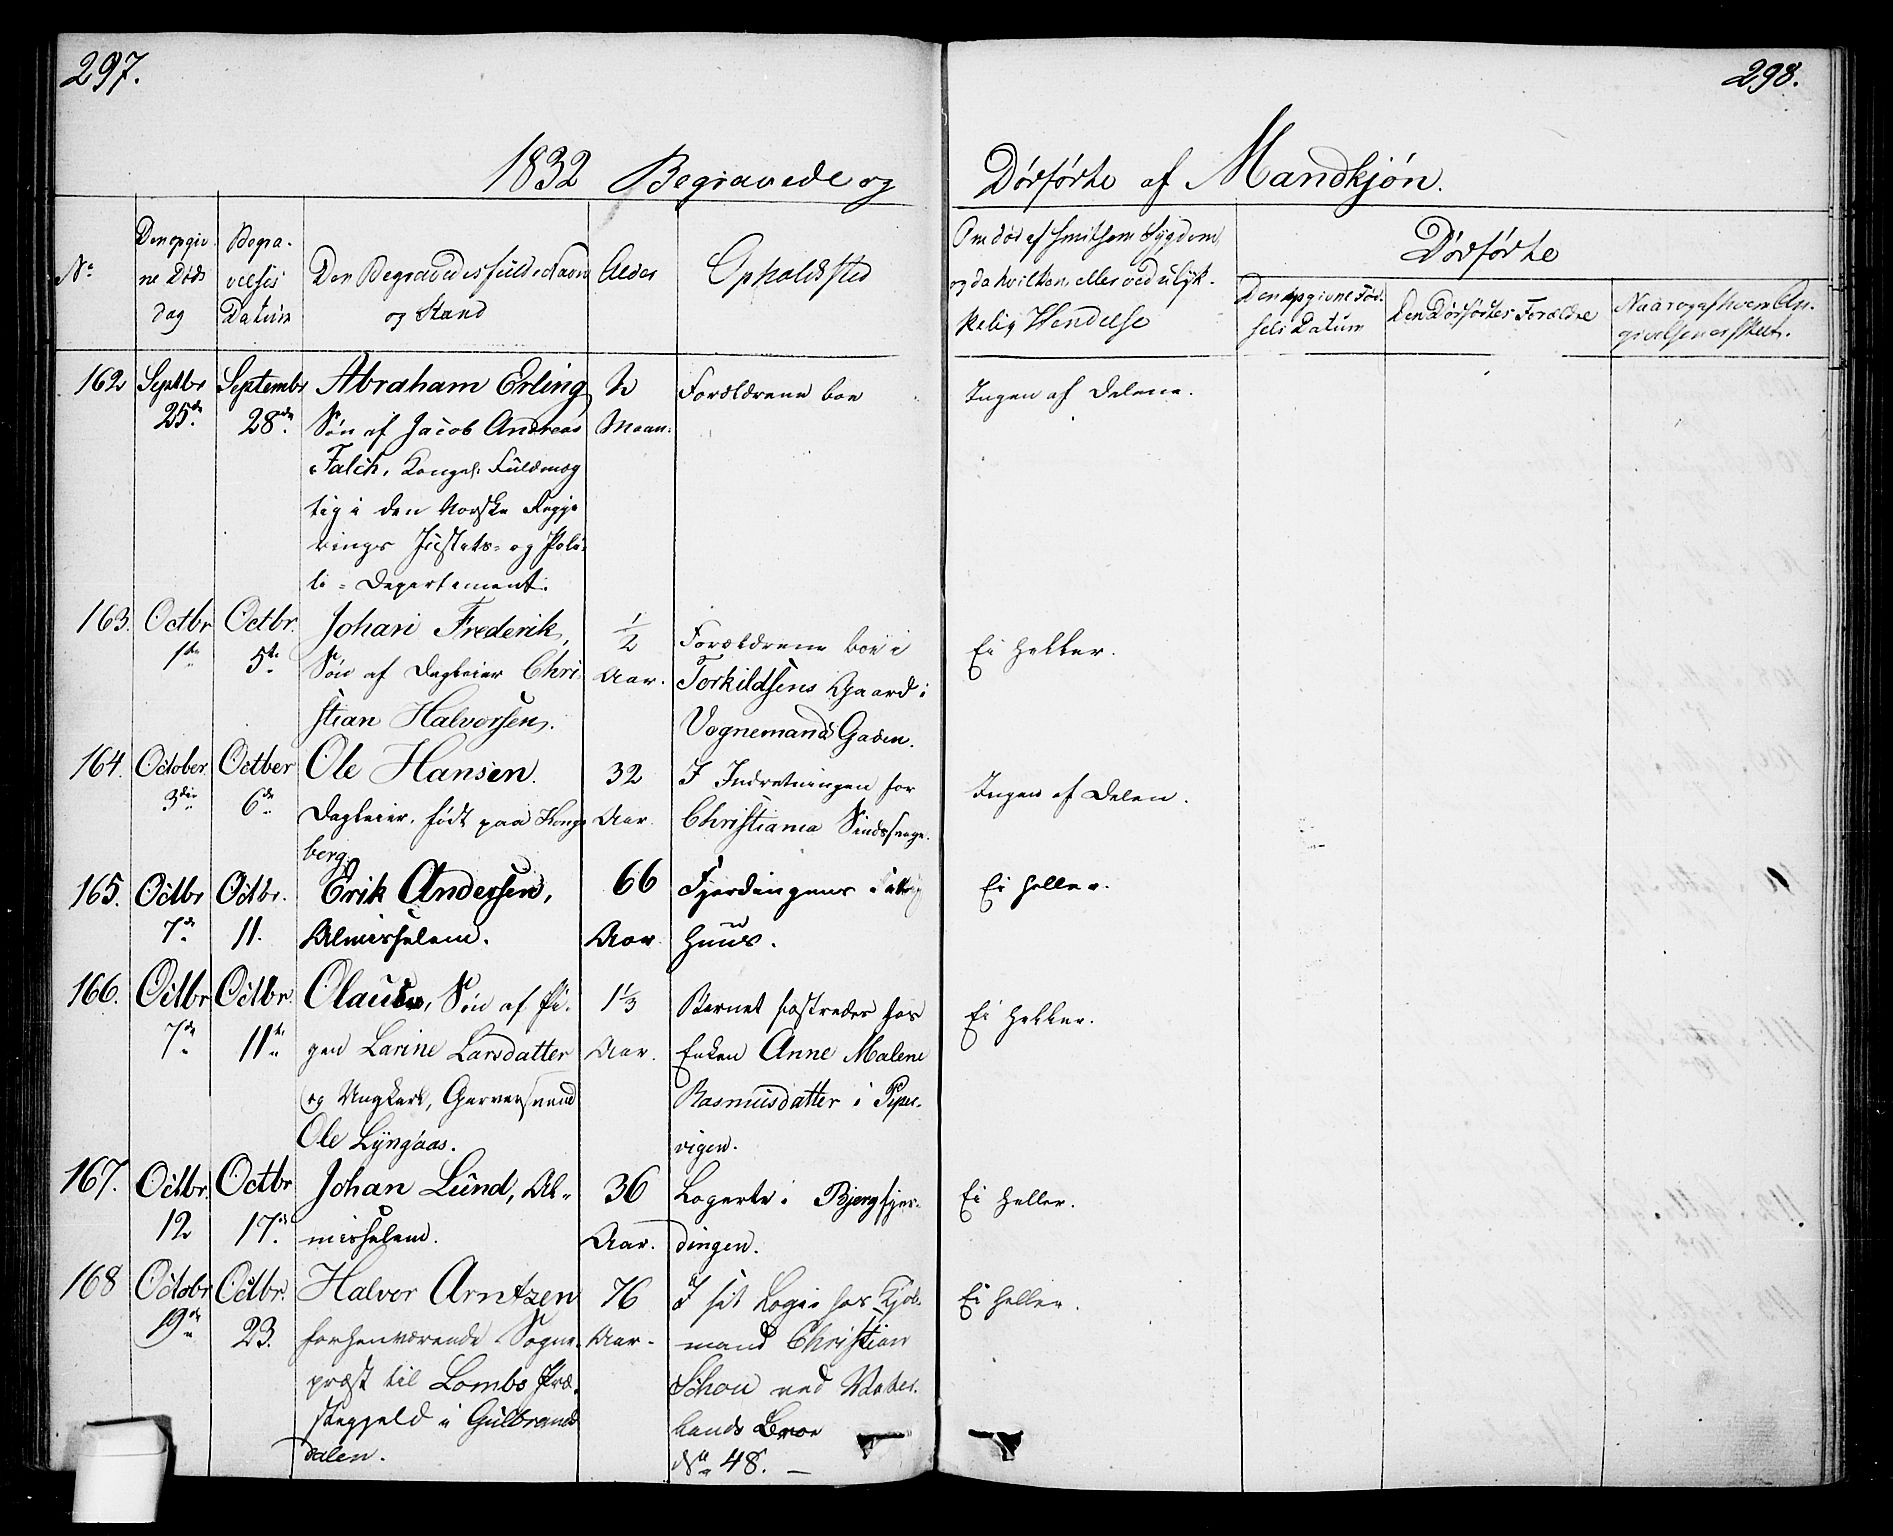 297.
298.
1832 Begravede og Dødfødte af Mandkjøn.
Nº
Den opgiv-
ne Døds
dag
Begra-
velses
Datum
Den Begravedes fulde Navn
og Stand
Alder
Opholdsted
Om død af smitsom Sygdom,
og da hvilken, eller ved ulyk-
kelig Hendelse
Dødfødte
Den opgivne Fød-
sels Datum
Den Dødfødtes Forældre
Naar og af hvem An-
givelsen er skeet.
162
Septbr
25de
Septembr
28de
Abraham Erling
Søn af Jacob Andreas
Falch, Kongel. Fuldmæg
tig i den Norske Regje
rings Justits- og Poli-
ti-Departement.
½
Maan:
Forældrene boe
Ingen af Delene.
163.
Octbr
1te
Octbr.
5te
Johan Frederik,
Søn af Dagleier Chri-
stian Halvorsen.
½
Aar.
Forældrene boe i
Torkildsens Gaard i
Vognemands Gaden.
Ei heller.
164.
October
3die
Octber
6te
Ole Hansen.
Dagleier, født paa Kongs
berg.
32
Aar.
I Indretningen for
Christiania Sindssvage.
Ingen af Delen.
165.
Octbr
7de
Octbr.
11.
Erik Andersen,
Almisselem.
66
Aar.
Fjerdingens Fattig
huus.
Ei heller.
166.
Octbr
7de
Octbr.
11te
Olaus, Søn af Pi-
gen Larine Larsdatter
og Ungkarl, Garversvend
Ole Lyngaas.
1⅓
Aar.
Barnet fostredes hos
Enken Anne Malene
Rasmusdatter i Piper-
vigen.
Ei heller.
167.
Octbr.
12
Octbr
17de
Johan Lund, Al-
misselem.
36
Aar.
Logerte i Bjergfjer-
dingen.
Ei heller.
168
Octobr
19de
Octbr.
23.
Halvor Arntzen
forhenværende Sogne-
præst til Lombs Præ-
stegjeld i Gulbrands
dalen.
76
Aar.
I sit Logis hos Kjøb-
mand Christian
Schou ved Vater-
lands Broe
Nº 48.
Ei heller.